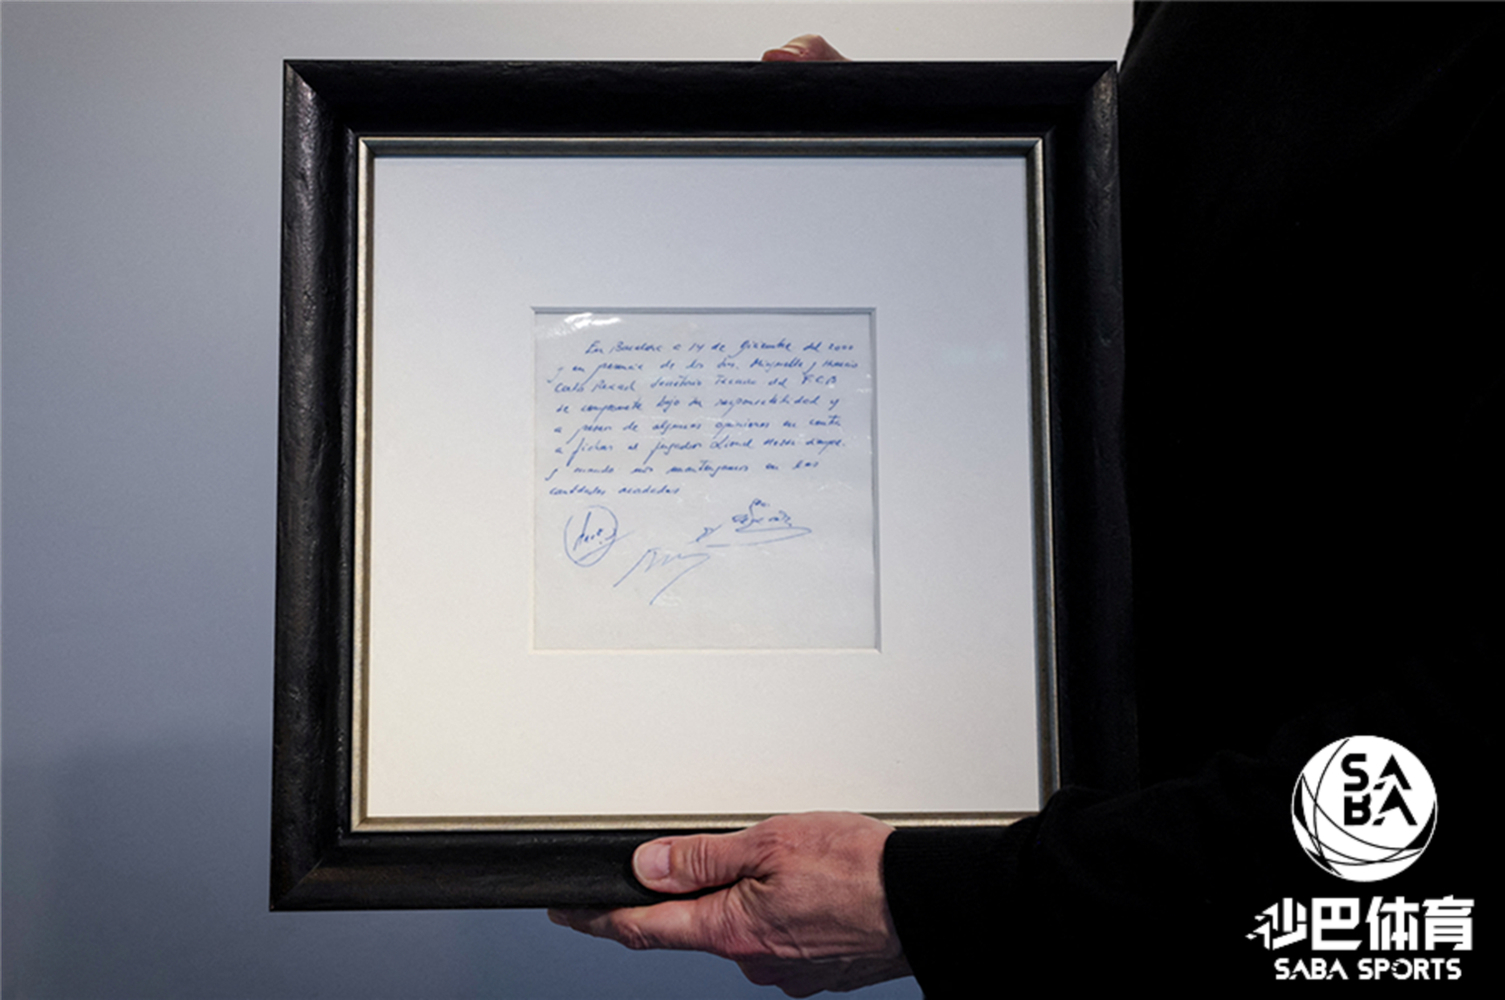 En Barcelona a 14 de Diciembre del 2000
y en presencia de los Srs. Minguella y Horacio
Carlos Rexach Secretario Tecnico del F.C.B
se compromete bajo su responsabilidad y
a pesar de algunas opiniones en contra
a fichar al jugador Lionel Messi siempre
y cuando nos mantengamos en las
cantidades acordadas
SABA
沙巴体育
SABA SPORTS